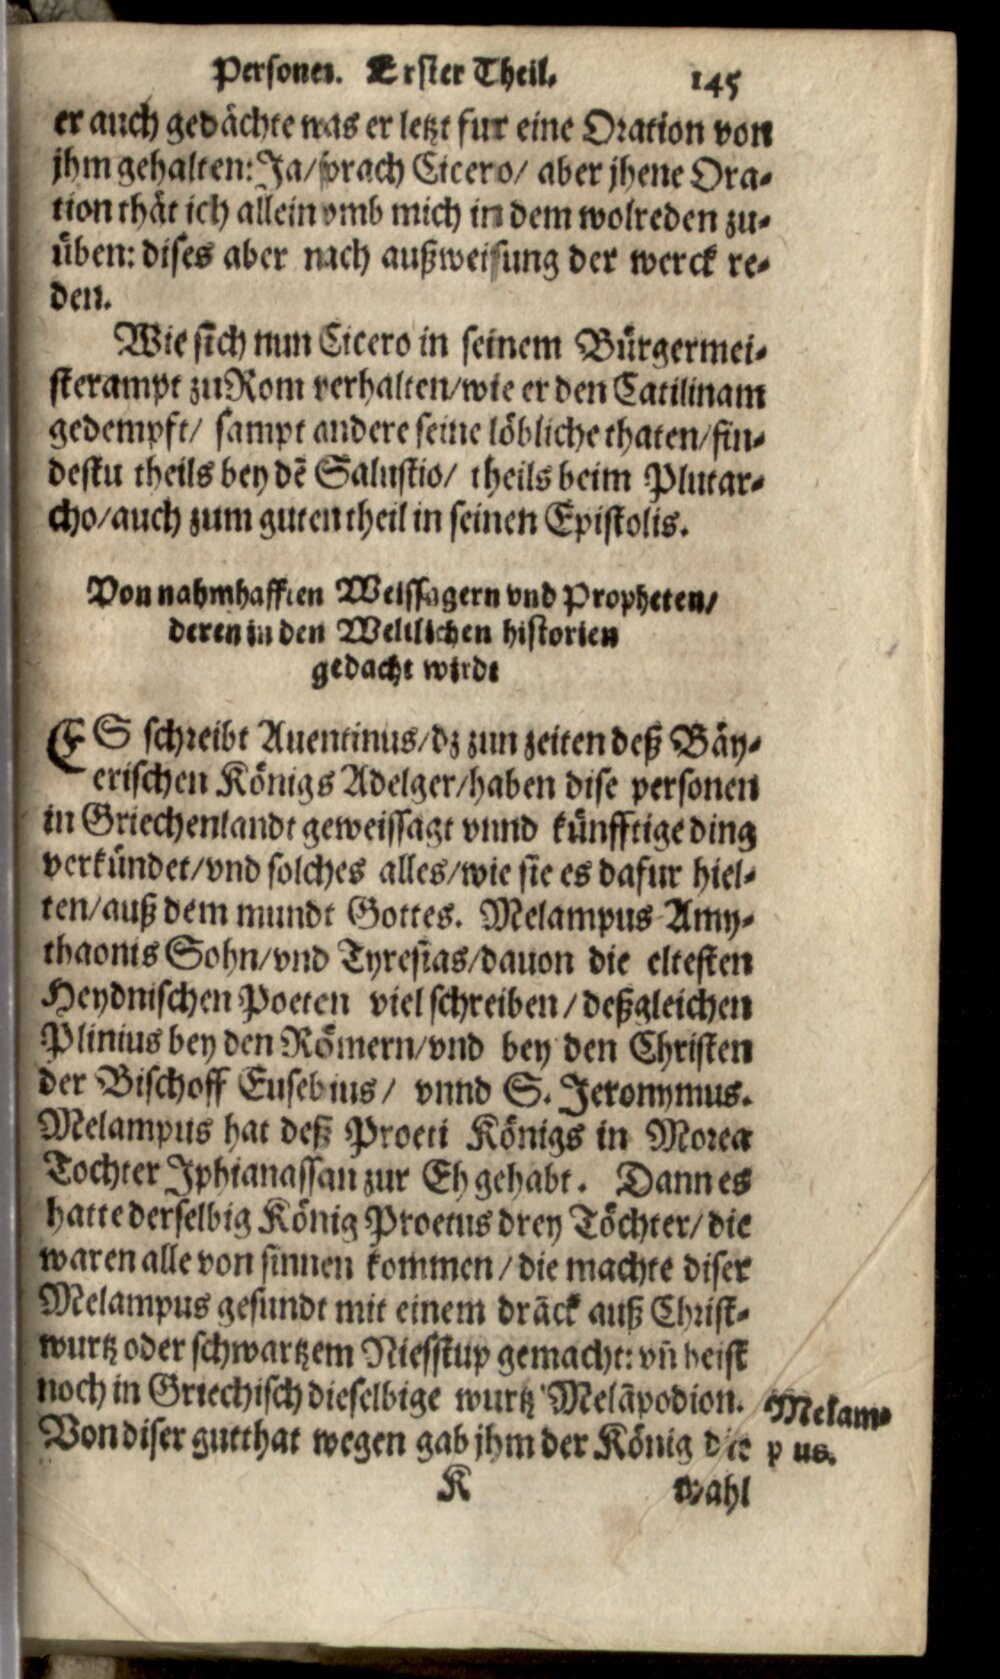 Personen. Erster Theil. 145
er auch gedächte was er letzt fur eine Oration von
jhm gehalten: Ja/ sprach Cicero/ aber jhene Ora-
tion thät ich allein vmb mich in dem wolreden zu-
üben: dises aber nach außweisung der werck re-
den.
Wie sich nun Cicero in seinem Bürgermei-
sterampt zu Rom verhalten/ wie er den Catilinam
gedempft/ sampt andere seine löbliche thaten/ fin-
destu theils bey dē Salustio/ theils beim Plutar-
cho/ auch zum guten theil in seinen Epistolis.
Von nahmhafften Weissagern vnd Propheten/
deren in den Weltlichen historien
gedacht wirdt
ES schreibt Auentinus/ dz zun zeiten deß Bäy-
erischen Königs Adelger/ haben dise personen
in Griechenlandt geweissagt vnnd künfftige ding
verkündet/ vnd solches alles/ wie sie es dafur hiel-
ten/ auß dem mundt Gottes. Melampus Amy-
thaonis Sohn/ vnd Tyresias/ dauon die eltesten
Heydnischen Poeten viel schreiben/ deßgleichen
Plinius bey den Römern/ vnd bey den Christen
der Bischoff Eusebius/ vnnd S. Jeronymus.
Melampus hat deß Proeti Königs in Morea
Tochter Iphianassan zur Eh gehabt. Dann es
hatte derselbig König Proetus drey Töchter/ die
waren alle von sinnen kommen/ die machte diser
Melampus gesundt mit einem dräck auß Christ-
wurtz oder schwartzem Niesstup gemacht: vn̄ heist
noch in Griechisch dieselbige wurtz Melāpodion.
Von diser gutthat wegen gab jhm der König die
Melam-
pus.
K wahl